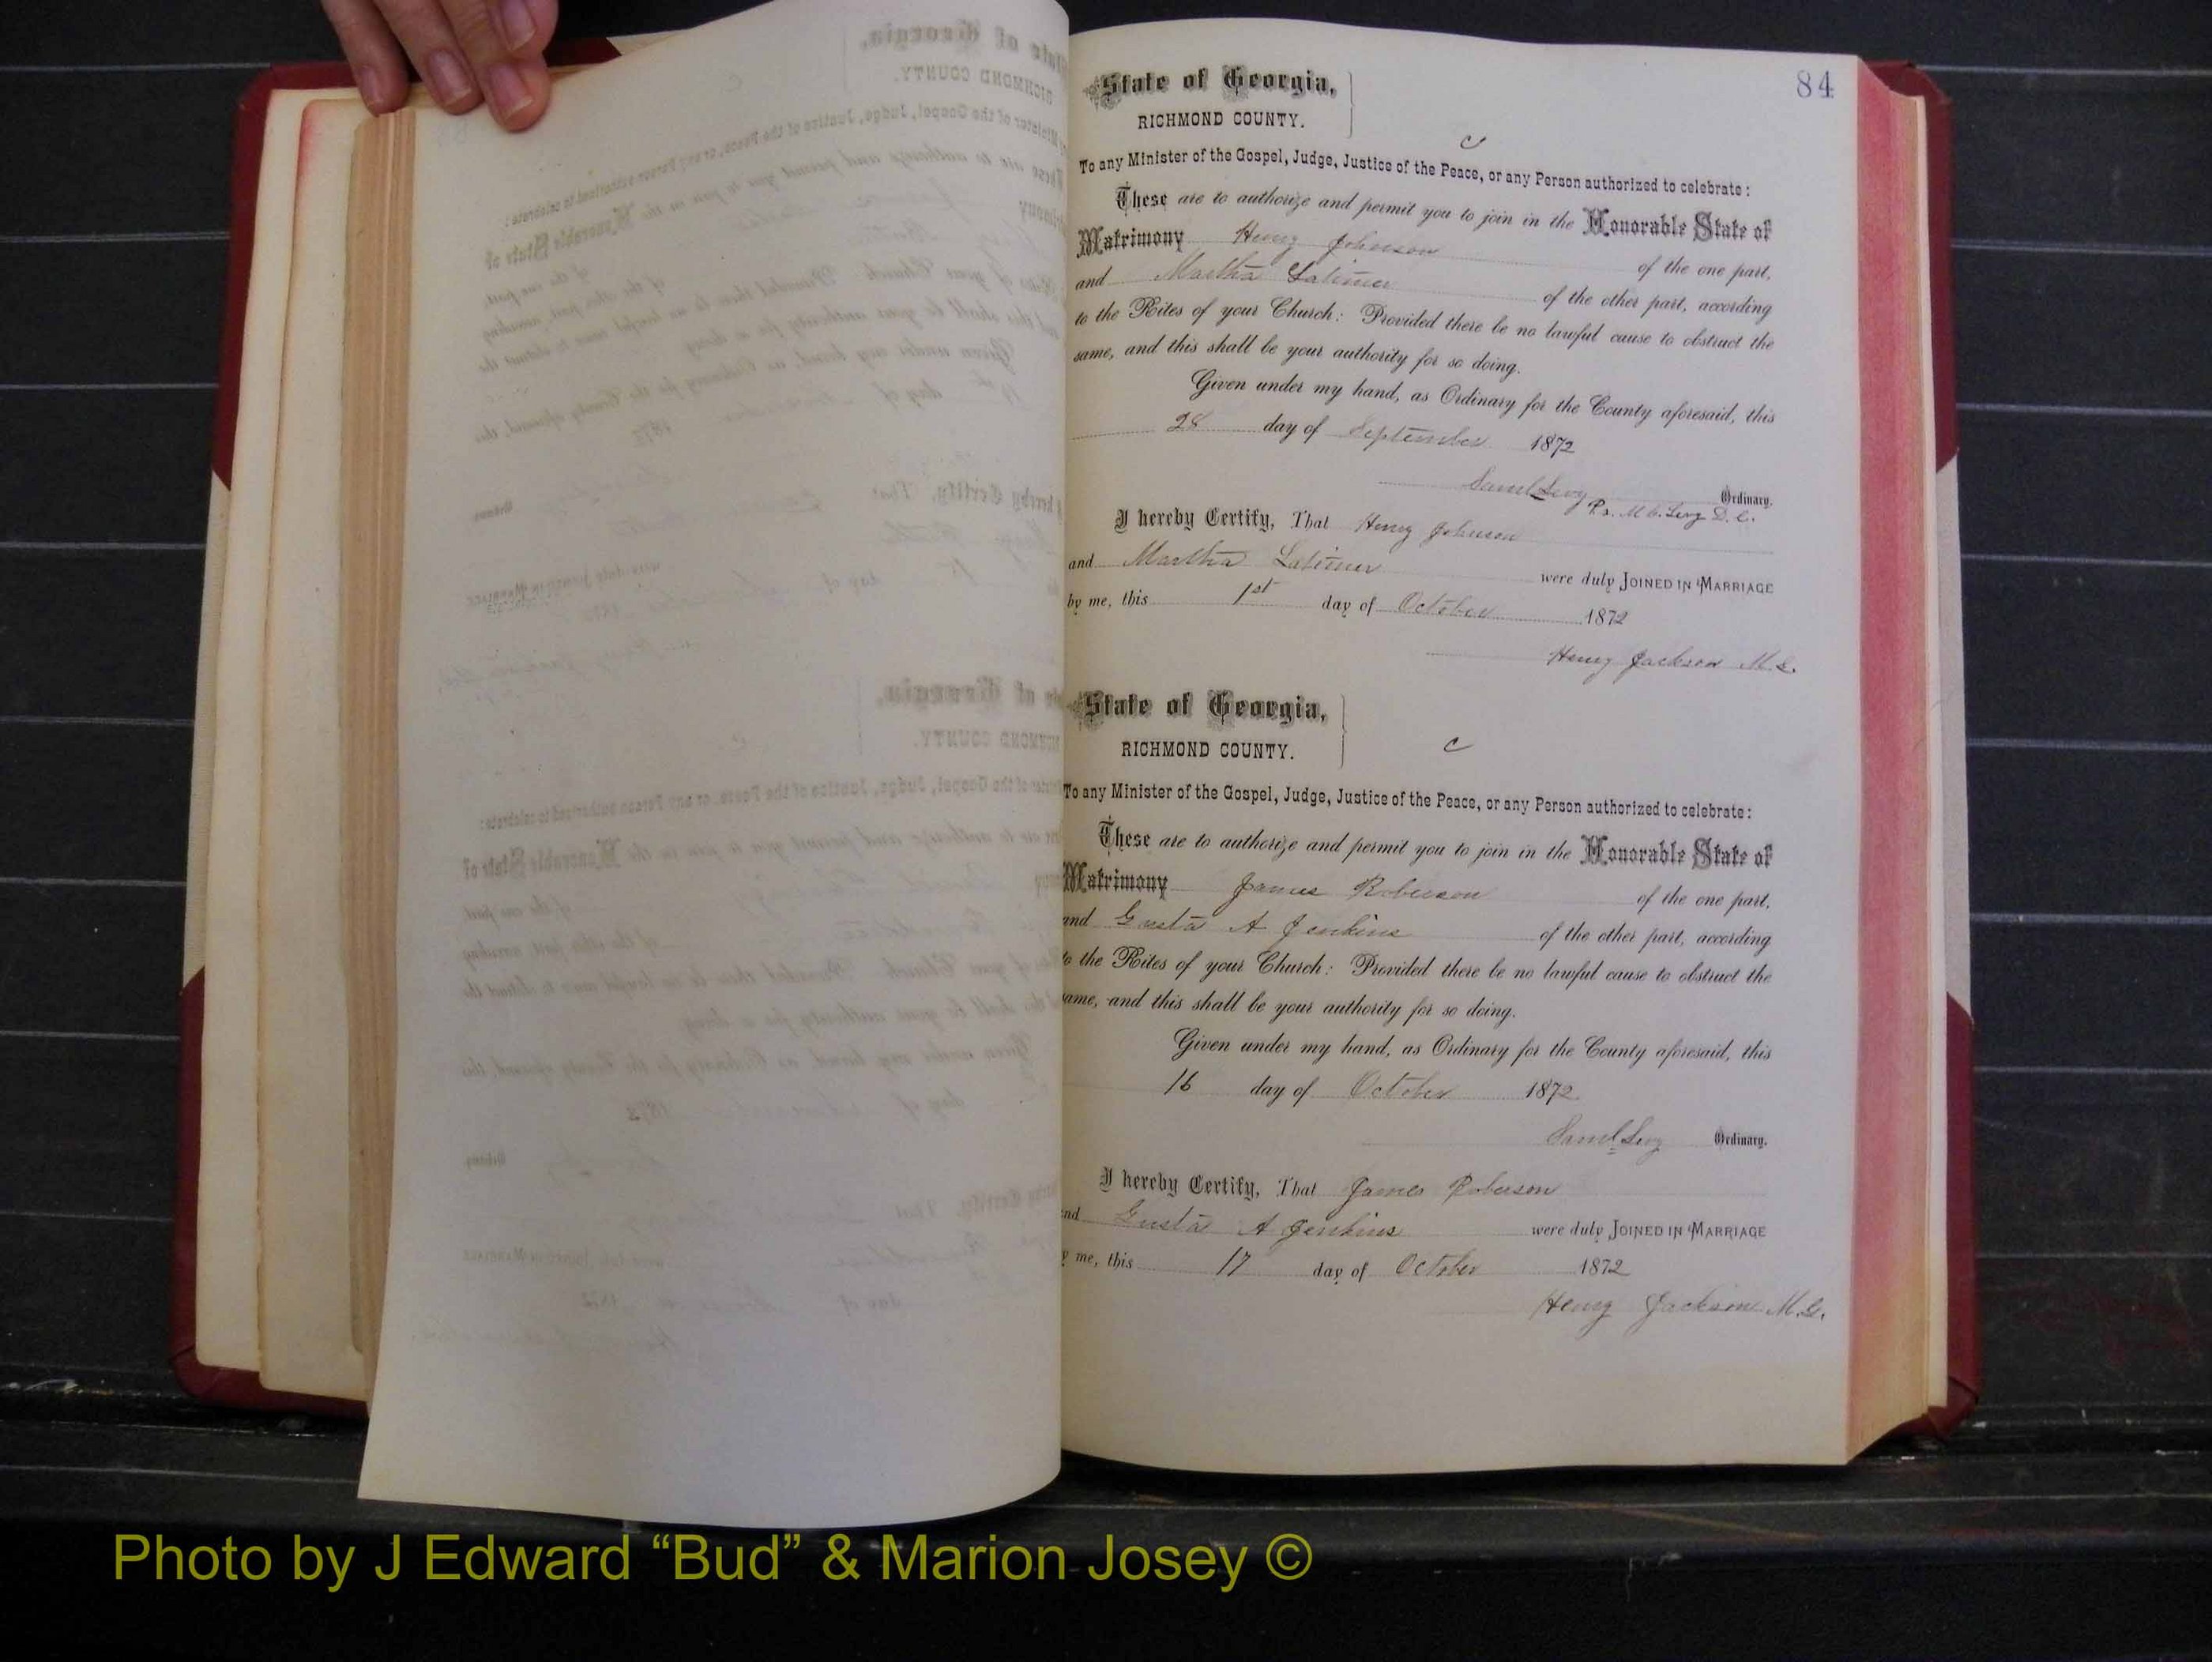 84
State of Georgia,
RICHMOND COUNTY.
c
To any Minister of the Gospel, Judge, Justice of the Peace, or any Person authorized to celebrate:
These are to authorize and permit you to join in the Honorable State of
Matrimony Henry Johnson of the one part,
and Martha Latimer of the other part, according
to the Rites of your Church: Provided there be no lawful cause to obstruct the
same, and this shall be your authority for so doing.
Given under my hand, as Ordinary for the County aforesaid, this
28 day of September 1872
Saml Levy Ordinary.
Pr. M C. Levy D. C.
I hereby Certify, That Henry Johnson
and Martha Latimer were duly JOINED IN MARRIAGE
by me, this 1st day of October 1872
Henry Jackson M. G.
State of Georgia,
RICHMOND COUNTY.
c
To any Minister of the Gospel, Judge, Justice of the Peace, or any Person authorized to celebrate:
These are to authorize and permit you to join in the Honorable State of
Matrimony James Roberson of the one part,
and Gusta A Jenkins of the other part, according
to the Rites of your Church: Provided there be no lawful cause to obstruct the
same, and this shall be your authority for so doing.
Given under my hand, as Ordinary for the County aforesaid, this
16 day of October 1872
Saml Levy Ordinary.
I hereby Certify, That James Roberson
and Gusta A Jenkins were duly JOINED IN MARRIAGE
by me, this 17 day of October 1872
Henry Jackson M. G.
Photo by J Edward “Bud” & Marion Josey ©